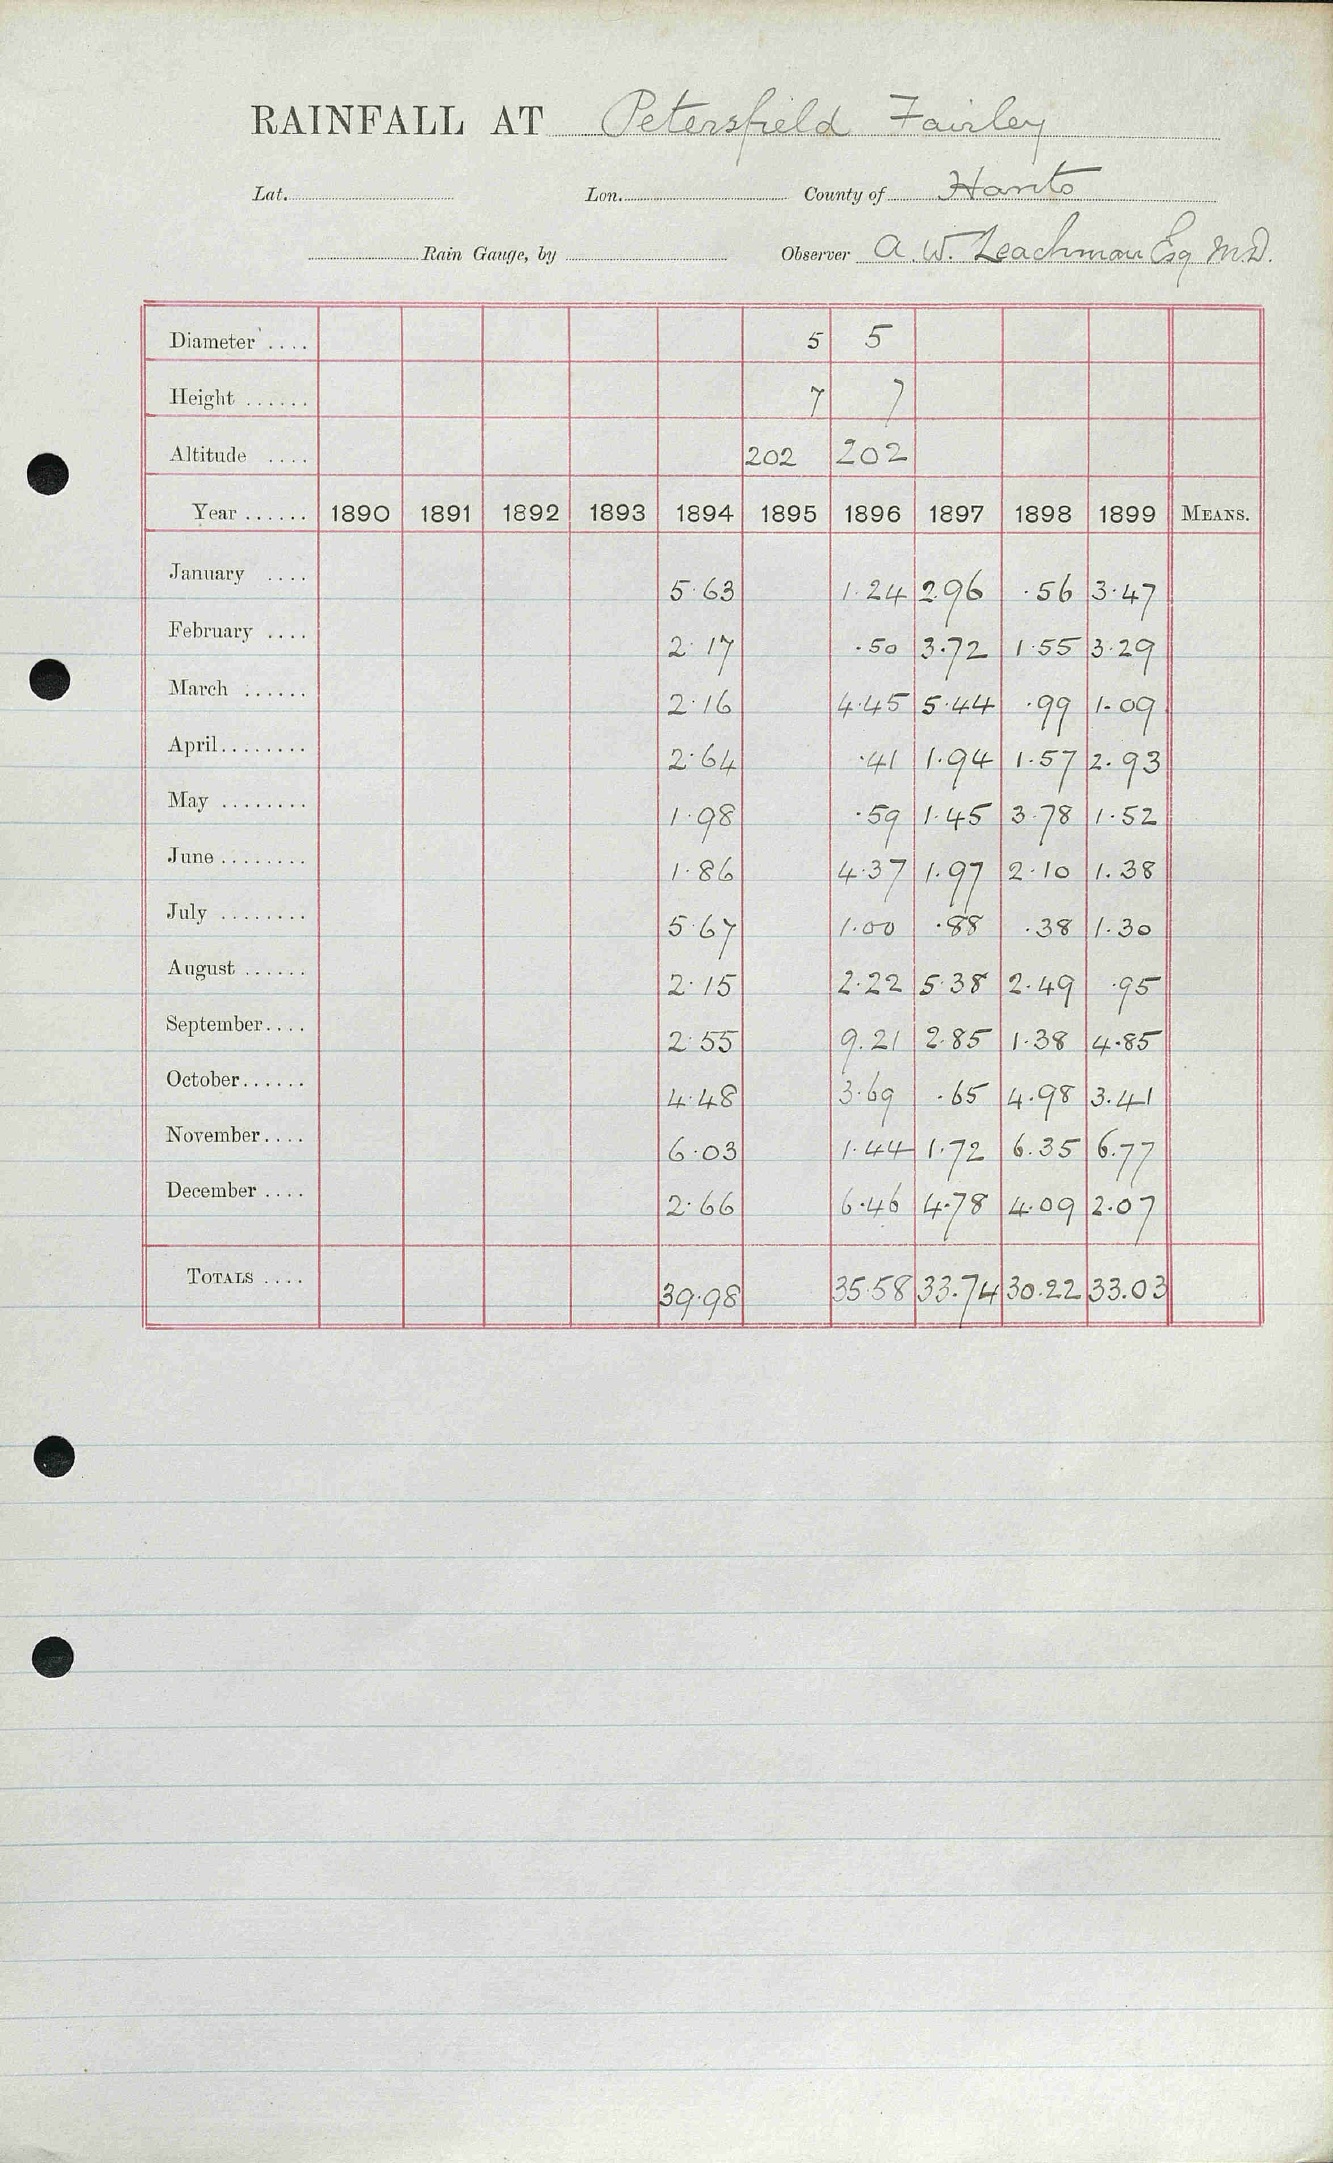 RAINFALL AT Petersfield Fairley
Lat. Lon. County of Hants
Rain Gauge, by Observer A. W. Leachman Esq M.D.
Diameter .... 5 5
Height ...... 7 7
Altitude .... 202 202
Year ...... 1890 1891 1892 1893 1894 1895 1896 1897 1898 1899 MEANS.
January .... 5.63 1.24 2.96 .56 3.47
February .... 2.17 .50 3.72 1.55 3.29
March ...... 2.16 4.45 5.44 .99 1.09
April........ 2.64 .41 1.94 1.57 2.93
May ........ 1.98 .59 1.45 3.78 1.52
June ........ 1.86 4.37 1.97 2.10 1.38
July ........ 5.67 1.00 .88 .38 1.30
August ...... 2.15 2.22 5.38 2.49 .95
September.... 2.55 9.21 2.85 1.38 4.85
October...... 4.48 3.69 .65 4.98 3.41
November.... 6.03 1.44 1.72 6.35 6.77
December .... 2.66 6.46 4.78 4.09 2.07
TOTALS .... 39.98 35.58 33.74 30.22 33.03